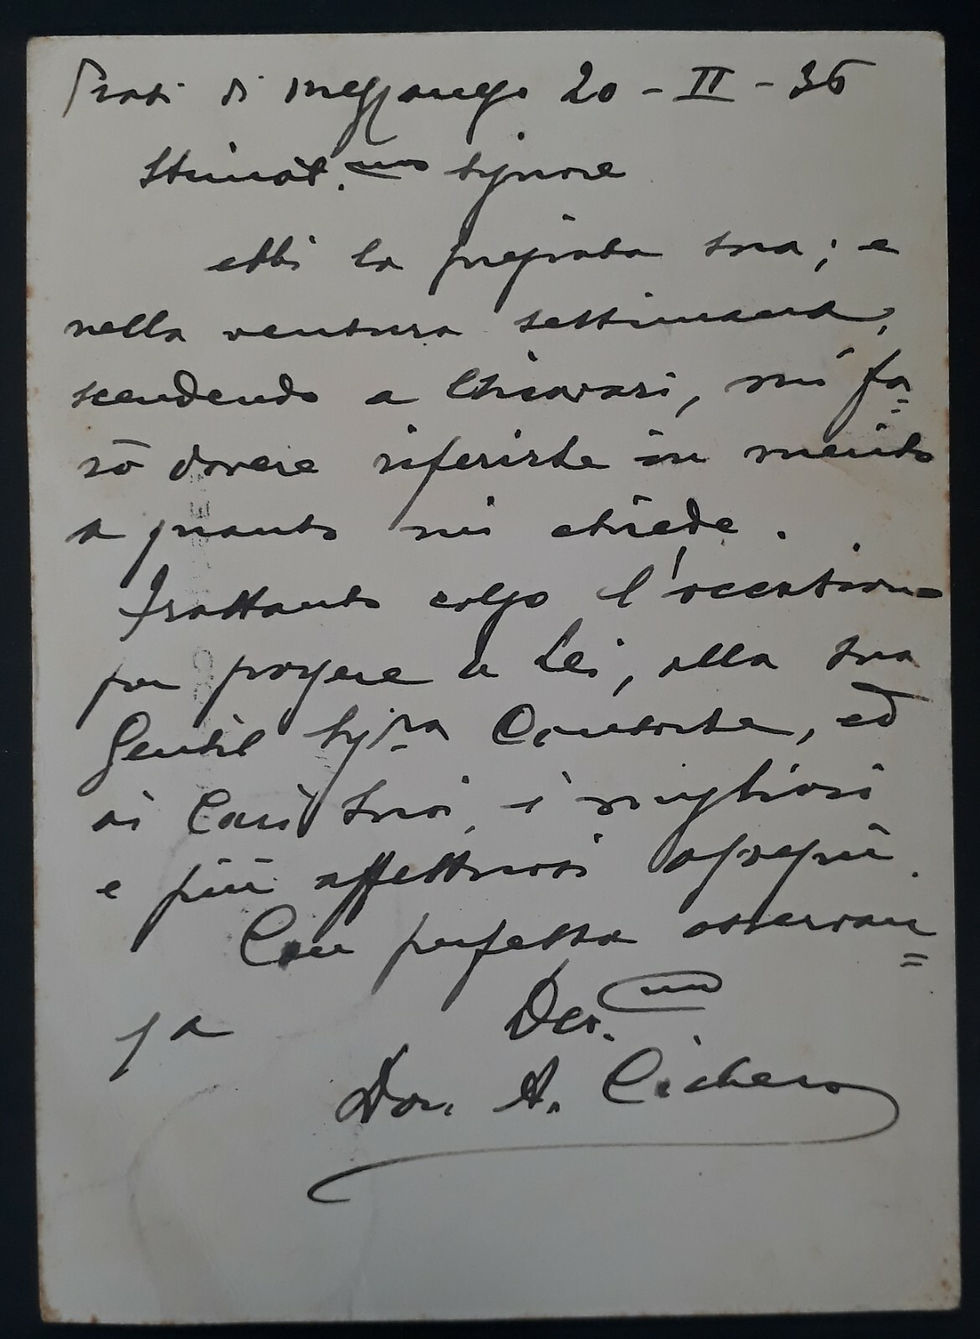 Prati di Mezzanego 20-II-36
Stimat.mo Signore
ebbi la pregiata sua; e
nella ventura settimana,
scendendo a Chiavari, mi fa=
rò dovere riferirle in merito
a quanto mi chiede.
Frattanto colgo l'occasione
per porgere a Lei, alla sua
Gentil Sig.ra Consorte, ed
ai Cari Suoi, i migliori
e più affettuosi ossequi.
Con perfetta osservan=
za Dev.mo
Don. A. Cichero